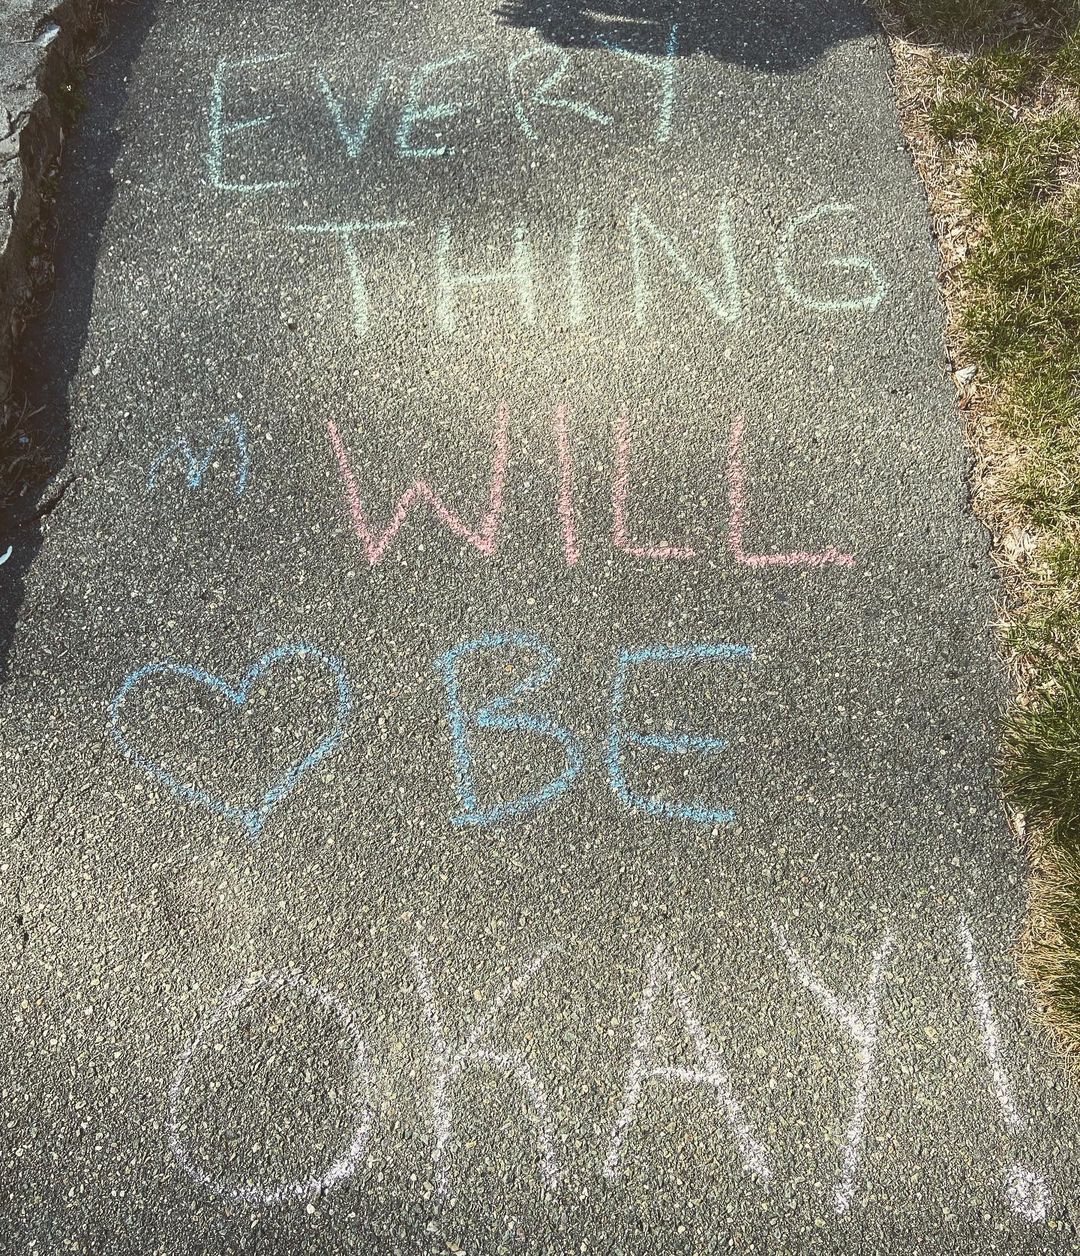 EVERY
THING
WILL
BE
OKAY!